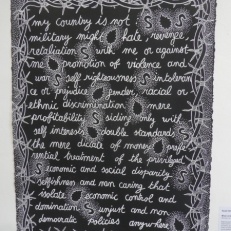 my country is not
military might hate, revenge,
retaliation with me or against
me promotion of violence and
war self righteousness intoleran
ce or prejudice gender, racial or
ethnic discrimination mere
profitability siding only with
self interests double standards
the mere dictate of money prefe
rential treatment of the privileged
economic and social disparity
selfishness and non caring that
isolate economic control and
domination unjust and non
democratic policies anywhere